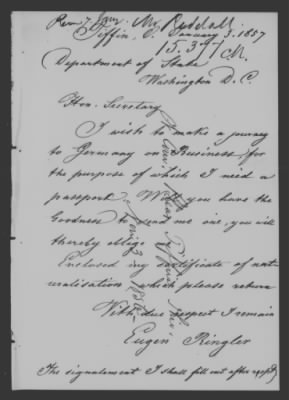 Tiffin, O. January 3. 1857
Department of State
Washington D. C.
Hon. Secretary
I wish to make a journey
to Germany on Business for
the purpose of which I need a
passport. Will you have the
Goodness to send me one, you will
thereby oblige
Enclosed my certificate of nat-
uralisation which please return
With due respect I remain
Eugen Ringler
The signalement I shall fill out after